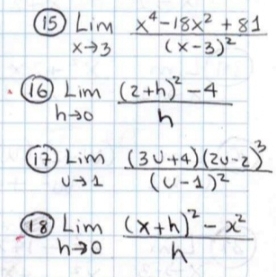 ⑮ Lim x→3 (x⁴-18x²+81)/(x-3)²
⑯ Lim h→0 ((2+h)²-4)/h
⑰ Lim U→1 ((3U+4)(2U-2)³)/(U-1)²
⑱ Lim h→0 ((x+h)²-x²)/h